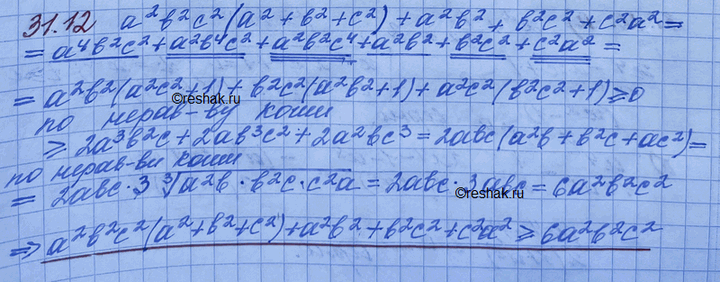 31.12 a²b²c²(a²+b²+c²)+a²b²+b²c²+c²a²=
=a⁴b²c²+a²b⁴c²+a²b²c⁴+a²b²+b²c²+c²a²=
=a²b²(a²c²+1)+b²c²(a²b²+1)+a²c²(b²c²+1)≥0
©reshak.ru
по нерав-ву коши
≥2a³b²c+2ab³c²+2a²bc³=2abc(a²b+b²c+ac²)=
по нерав-ви коши
=2abc·3∛a²b·b²c·c²a=2abc·3abc=6a²b²c²
©reshak.ru
⇒a²b²c²(a²+b²+c²)+a²b²+b²c²+c²a²≥6a²b²c²